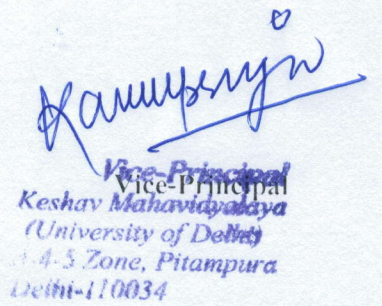 Vice-Principal
Vice-Principal
Keshav Mahavidyalaya
(University of Delhi)
4-5 Zone, Pitampura
Delhi-110034